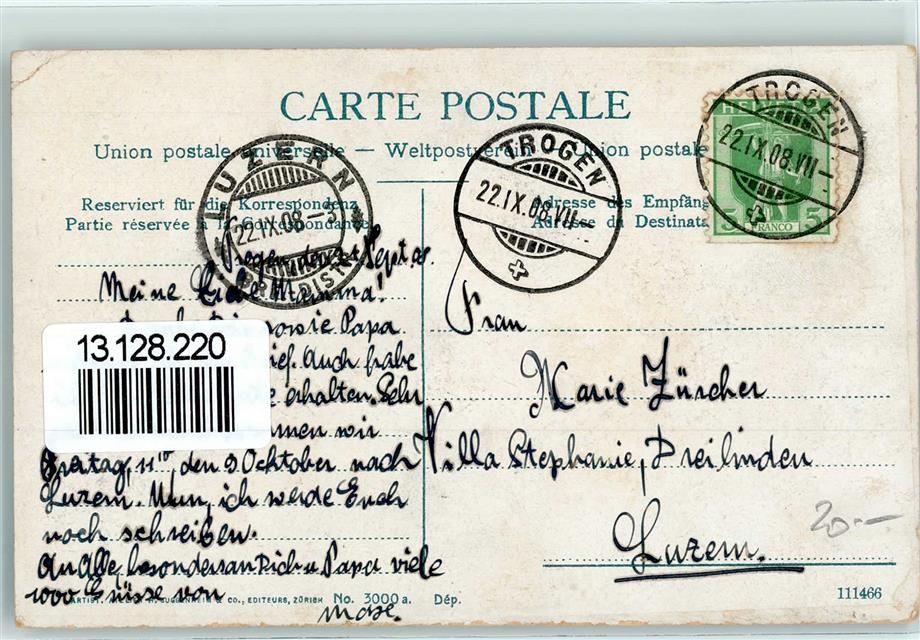 CARTE POSTALE
Union postale universelle — Weltpostverein — Union postale
Reserviert für die Korrespondenz
Partie réservée à la Correspondance
Adresse des Empfäng
Adresse du Destinata
LUZERN
22.IX.08.–3
BRF. DIST.
TROGEN
22.IX.08.VII
TROGEN
22.IX.08.VII
HELVETIA
5 5
FRANCO
Trogen, den Sept. 08.
Meine liebe Mamma!
sowie Papa
Auch habe
erhalten. Sehr
kommen wir
Freitag, 11¹⁰, den 9. Oktober nach
Luzern. Nun, ich werde Euch
noch schreiben.
An Alle, besonders an Dich u. Papa viele
1000 Grüsse von
Max.
Frau
Marie Zürcher
Villa Stephanie, Dreilinden
Luzern.
20.—
13.128.220
& CO., EDITEURS, ZÜRICH No. 3000 a. Dép.
111466